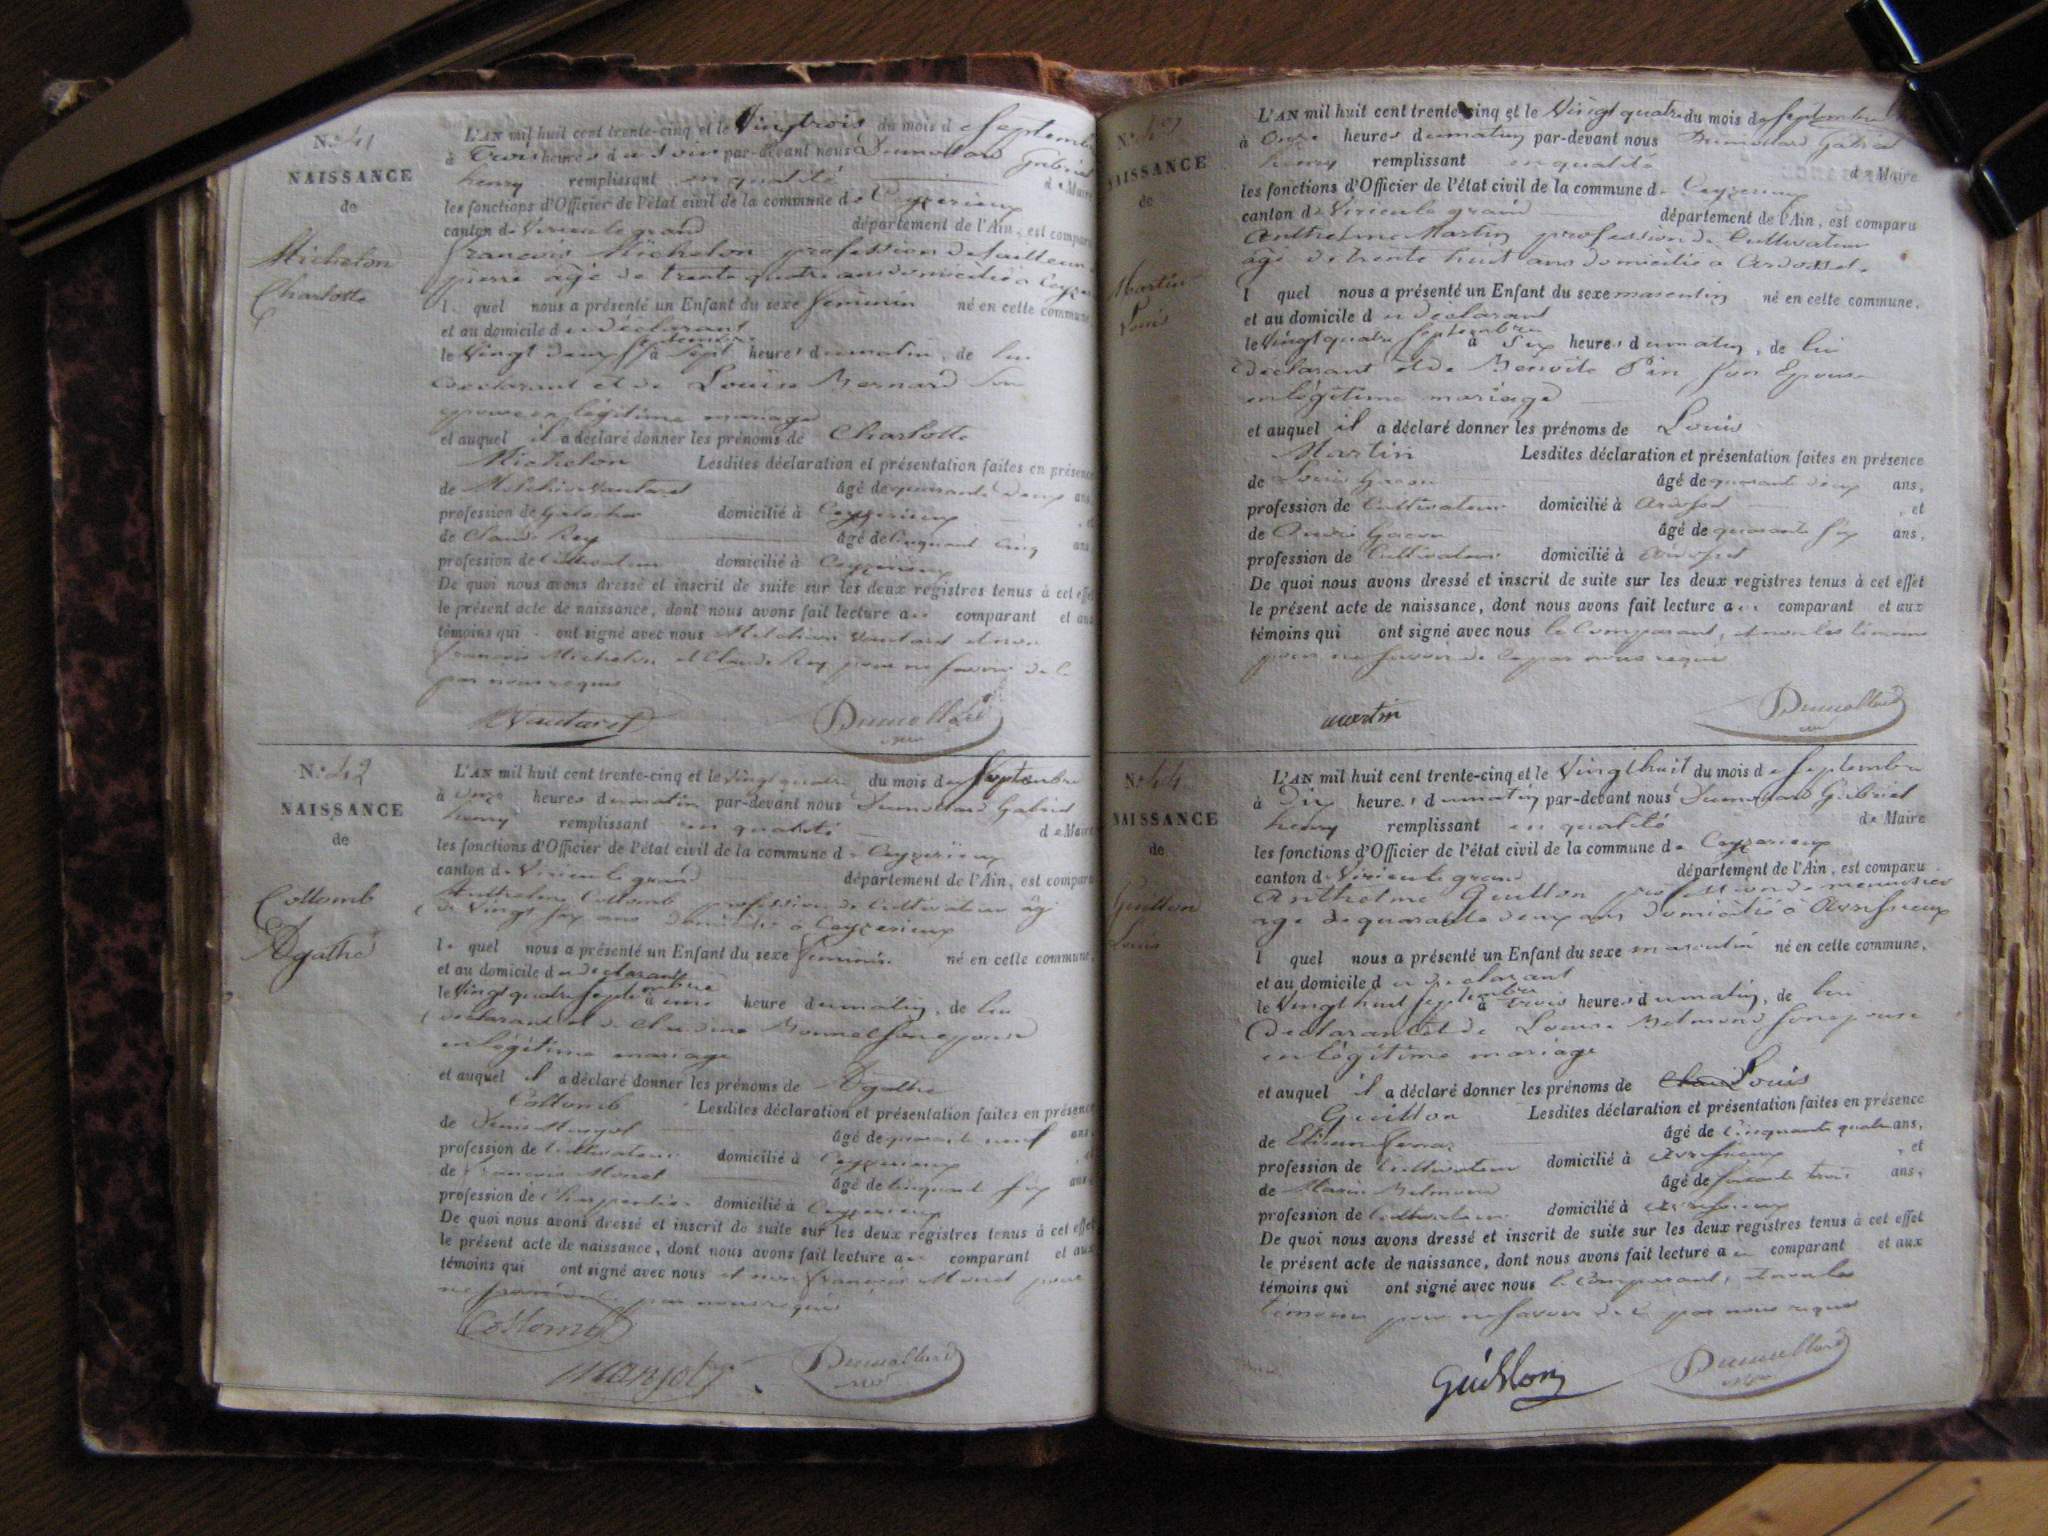 N.º 41
NAISSANCE
de
Michelon
Charlotte
L'AN mil huit cent trente-cinq et le Vingt trois du mois de Septembre
à Trois heures du Soir par-devant nous Dumollard Gabriel
henry remplissant en qualité de Maire
les fonctions d'Officier de l'état civil de la commune de Ceyzerieux
canton de Virieu le grand département de l'Ain, est comparu
francois Michelon profession de tailleur de
pierre âgé de trente quatre ans domicilié à Ceyzerieux
l quel nous a présenté un Enfant du sexe feminin né en cette commune,
et au domicile du declarant
le Vingt deux septembre à Sept heures du matin, de lui
declarant et de Louise Bernard Son
epouse en légitime mariage
et auquel il a déclaré donner les prénoms de Charlotte
Michelon Lesdites déclaration et présentation faites en présence
de Melchior Vautaret âgé de quarante deux ans,
profession de domicilié à Ceyzerieux , et
de Claude Rey âgé de Cinquante Cinq ans,
profession de Cultivateur domicilié à Ceyzerieux
De quoi nous avons dressé et inscrit de suite sur les deux registres tenus à cet effet
le présent acte de naissance, dont nous avons fait lecture au comparant et aux
témoins qui ont signé avec nous Melchior Vautaret et non
francois Michelon et Claude Rey pour ne savoir de ce
par nous requis
Vautaret Dumollard
N.º 42
NAISSANCE
de
Collomb
Agathe
L'AN mil huit cent trente-cinq et le Vingt quatre du mois de Septembre
à onze heures du matin par-devant nous Dumollard Gabriel
henry remplissant en qualité de Maire
les fonctions d'Officier de l'état civil de la commune de Ceyzerieux
canton de Virieu le grand département de l'Ain, est comparu
Anthelme Collomb profession de Cultivateur âgé
de Vingt six ans domicilié à Ceyzerieux
le quel nous a présenté un Enfant du sexe feminin né en cette commune,
et au domicile du declarant
le Vingt quatre septembre à une heure du matin, de lui
declarant et de Claudine Monnet son epouse
en légitime mariage
et auquel il a déclaré donner les prénoms de Agathe
Collomb Lesdites déclaration et présentation faites en présence
de âgé de quarante neuf ans,
profession de Cultivateur domicilié à Ceyzerieux , et
de francois Monet âgé de Cinquante six ans,
profession de Charpentier domicilié à Ceyzerieux
De quoi nous avons dressé et inscrit de suite sur les deux registres tenus à cet effet
le présent acte de naissance, dont nous avons fait lecture au comparant et aux
témoins qui ont signé avec nous et non francois Monet pour
ne savoir de ce par nous requis
Collomb
Manjot Dumollard
N.º 43
NAISSANCE
de
Martin
Louis
L'AN mil huit cent trente-cinq et le Vingt quatre du mois de Septembre
à Onze heures du matin par-devant nous Dumollard Gabriel
henry remplissant en qualité de Maire
les fonctions d'Officier de l'état civil de la commune de Ceyzerieux
canton de Virieu le grand département de l'Ain, est comparu
Anthelme Martin profession de Cultivateur
âgé de trente huit ans domicilié à Ardosset
l quel nous a présenté un Enfant du sexe masculin né en cette commune,
et au domicile du declarant
le Vingt quatre septembre à Six heures du matin, de lui
declarant et de Benoite Pin son Epouse
en légitime mariage
et auquel il a déclaré donner les prénoms de Louis
Martin Lesdites déclaration et présentation faites en présence
de Louis Gacon âgé de quarante deux ans,
profession de Cultivateur domicilié à Ardosset , et
de André Gacon âgé de quarante six ans,
profession de Cultivateur domicilié à Ardosset
De quoi nous avons dressé et inscrit de suite sur les deux registres tenus à cet effet
le présent acte de naissance, dont nous avons fait lecture au comparant et aux
témoins qui ont signé avec nous le Comparant, et non les témoins
pour ne savoir de ce par nous requis
martin Dumollard
N.º 44
NAISSANCE
de
Guillon
Louis
L'AN mil huit cent trente-cinq et le Vingt huit du mois de Septembre
à Dix heures du matin par-devant nous Dumollard Gabriel
henry remplissant en qualité de Maire
les fonctions d'Officier de l'état civil de la commune de Ceyzerieux
canton de Virieu le grand département de l'Ain, est comparu
Anthelme Guillon profession de menuisier
age de quarante deux ans domicilié à Avrissieux
l quel nous a présenté un Enfant du sexe masculin né en cette commune,
et au domicile du declarant
le Vingt huit septembre à trois heures du matin, de lui
declarant et de Louise Belmond son epouse
en légitime mariage
et auquel il a déclaré donner les prénoms de Louis
Guillon Lesdites déclaration et présentation faites en présence
de Etienne âgé de Cinquante quatre ans,
profession de Cultivateur domicilié à Avrissieux , et
de Marin Belmond âgé de soixante trois ans,
profession de Cultivateur domicilié à Avrissieux
De quoi nous avons dressé et inscrit de suite sur les deux registres tenus à cet effet
le présent acte de naissance, dont nous avons fait lecture au comparant et aux
témoins qui ont signé avec nous le Comparant, et non les
témoins pour ne savoir de ce par nous requis
Guillon Dumollard